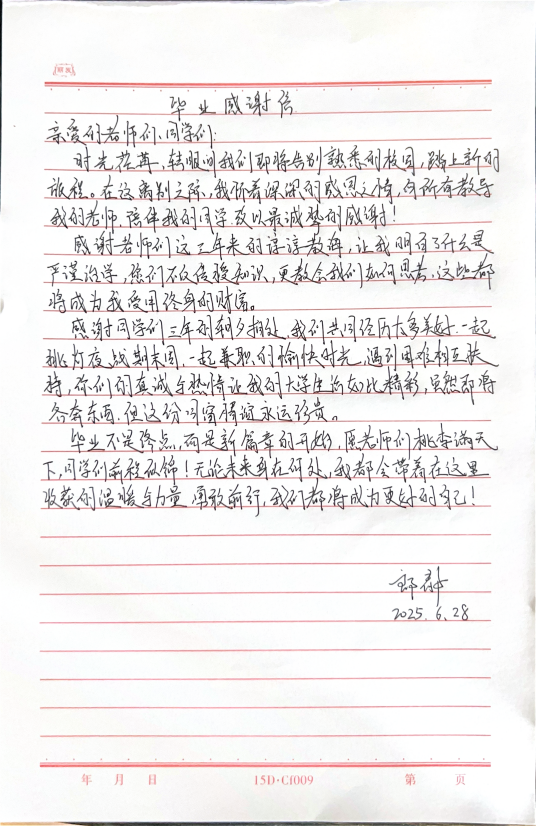 毕业感谢信
亲爱的老师们、同学们:
时光荏苒,转眼间我们即将告别熟悉的校园,踏上新的
旅程。在这离别之际,我怀着深深的感恩之情,向所有教导
我的老师,陪伴我的同学致以最诚挚的感谢!
感谢老师们这三年来的谆谆教诲,让我明白了什么是
严谨治学,您们不仅传授知识,更教会我们如何思考,这些都
将成为我受用终身的财富。
感谢同学们三年的朝夕相处,我们共同经历太多美好,一起
挑灯夜战期末周,一起兼职的愉快时光,遇到困难相互扶
持,你们的真诚与热情让我的大学生活如此精彩,虽然即将
各奔东西,但这份同窗情谊永远珍贵。
毕业不是终点,而是新篇章的开始,愿老师们桃李满天
下,同学们前程似锦!无论未来身在何处,我都会带着在这里
收获的温暖与力量,勇敢前行,我们都将成为更好的自己!
2025.6.28
年 月 日 15D·Cf009 第 页